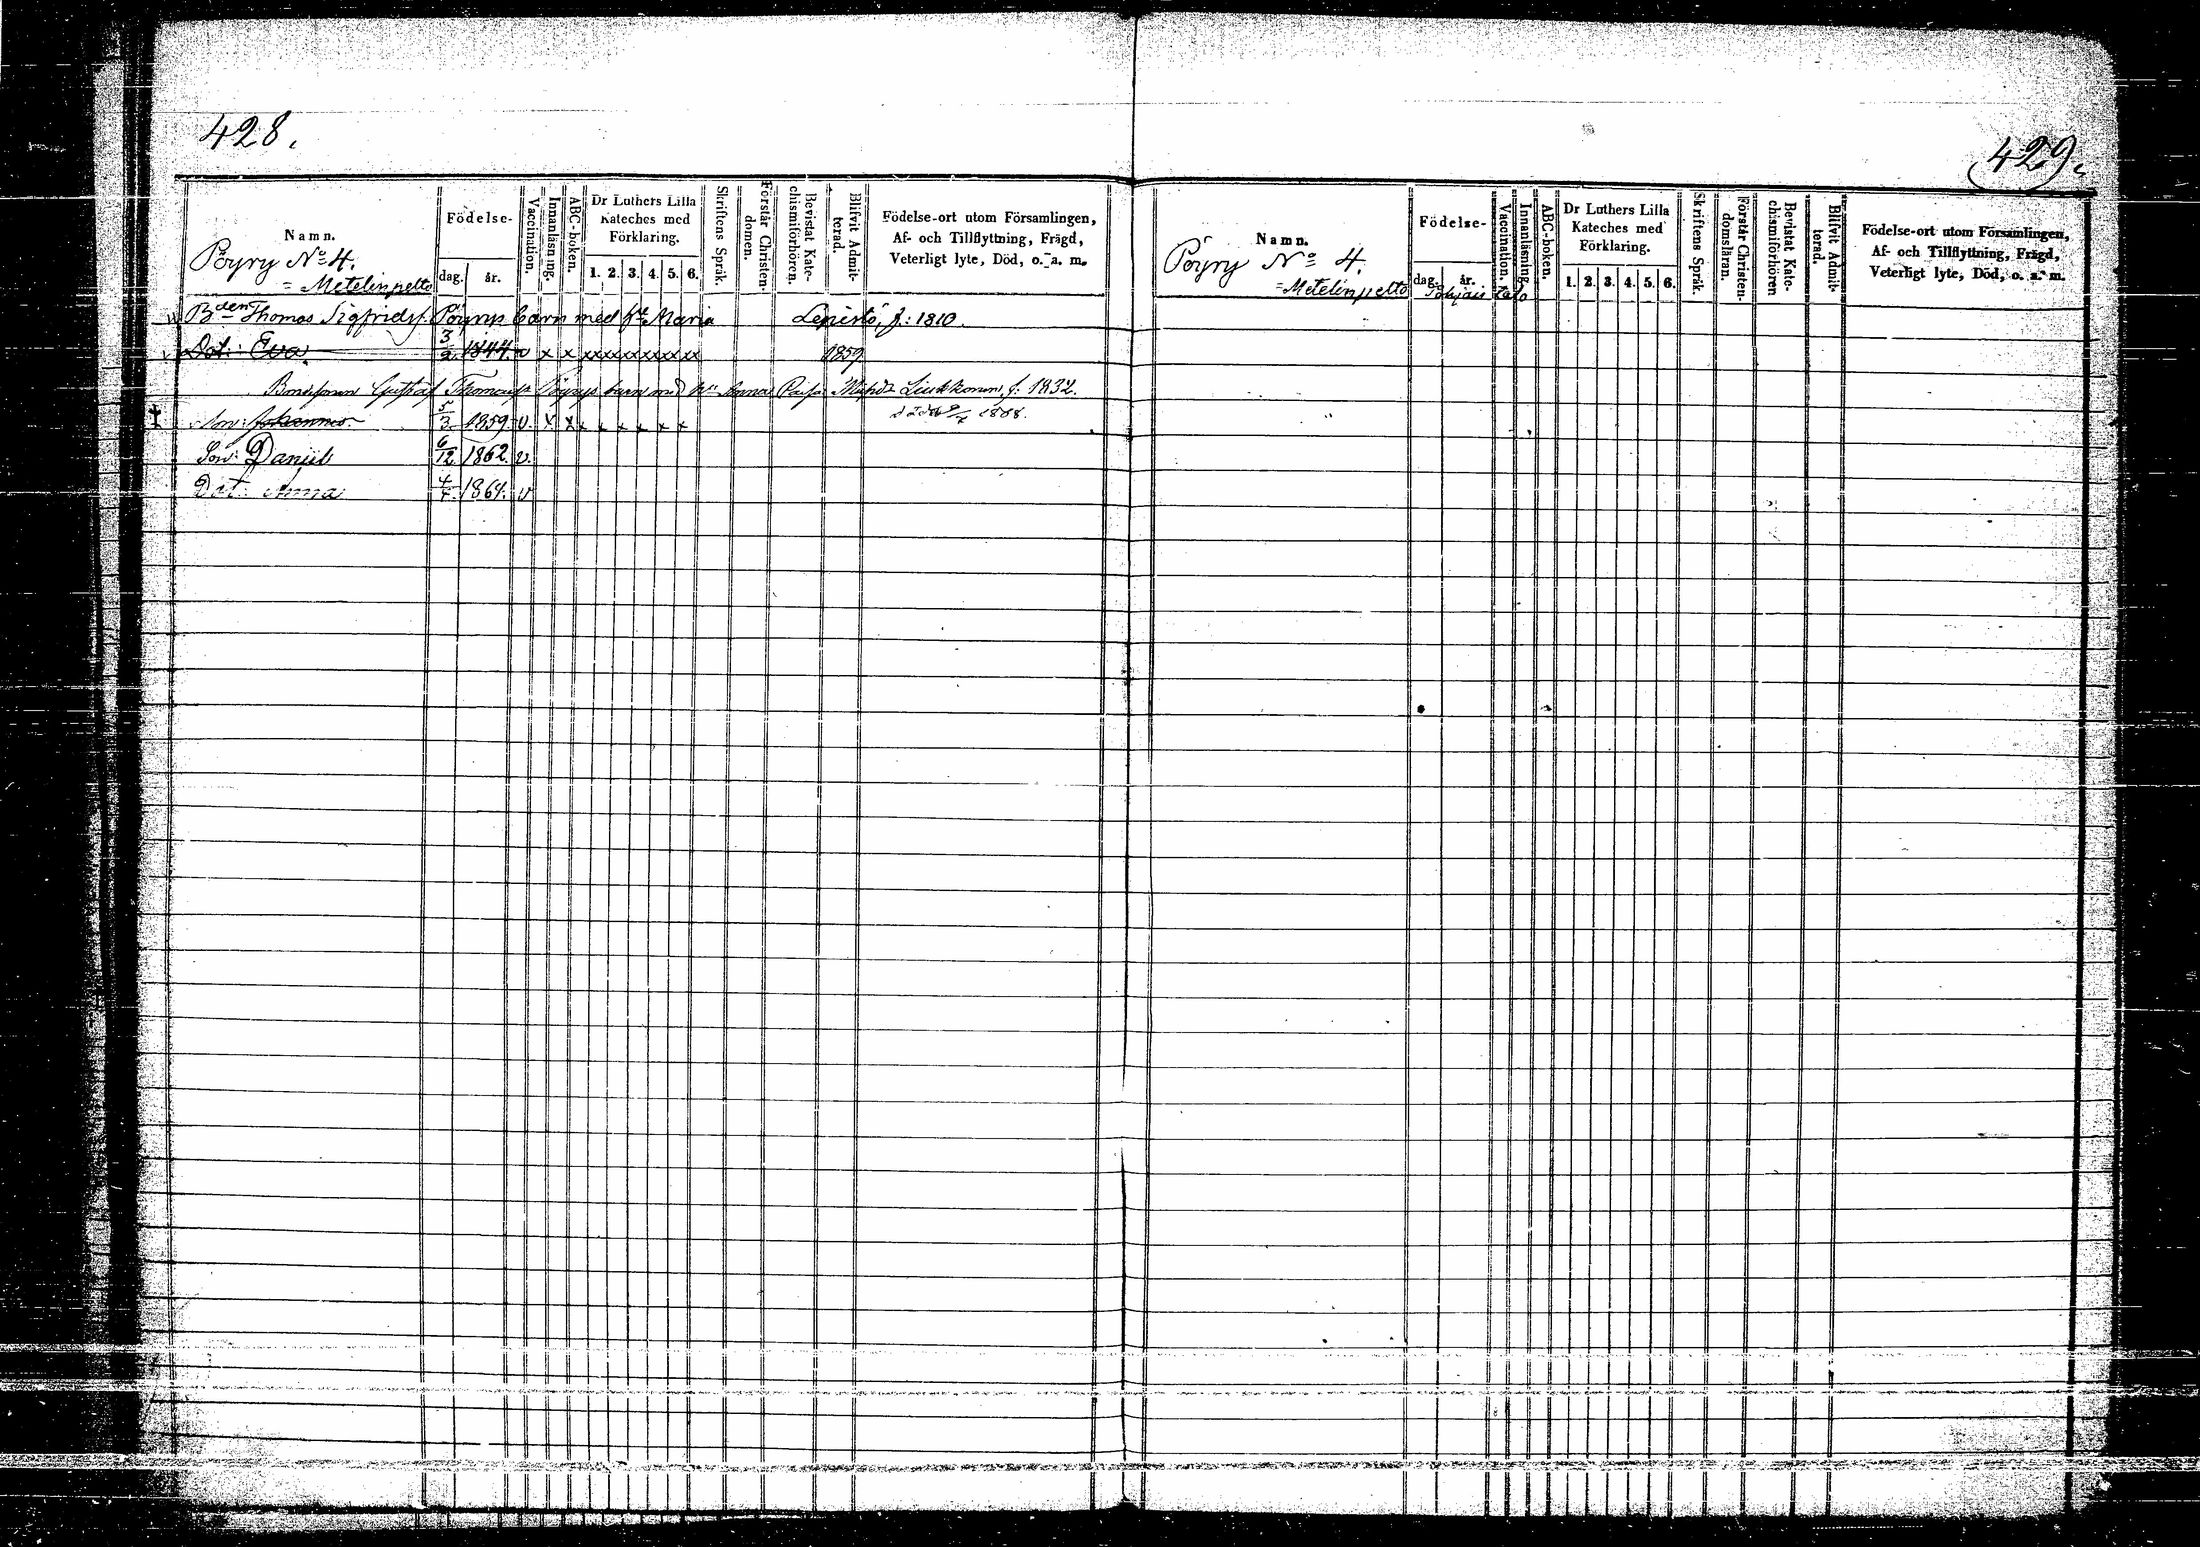 428.
Namn.
Födelse-
dag. år.
Vaccination.
Innanläsning.
ABC-boken.
Dr Luthers Lilla
Kateches med
Förklaring.
1. 2. 3. 4. 5. 6.
Skriftens Språk.
Förstår Christen-
domen.
Bevistat Kate-
chismiförhören.
Blifvit Admit-
terad.
Födelse-ort utom Församlingen,
Af- och Tillflyttning, Frägd,
Veterligt lyte, Död, o. a. m.
Pöyry No 4.
= Metelinpelto
Bden Thomas Sigfridsf. Pöyrys barn med hu Maria Lepistö, f: 1810.
Dot: Eva 3/2 1844. v x x xxxxxxxxxx 1859
Bondsonen Gustaf Thomasf. Pöyrys barn med hu Anna Caisa Liukkonen, f: 1832.
† Son: Johannes 5/3 1859. v. x x x x x x x död 1868.
Son: Daniel 6/12 1862. v.
Dot: Anna 4/7 1864. v
429.
Namn.
Födelse-
dag. år.
Vaccination.
Innanläsning.
ABC-boken.
Dr Luthers Lilla
Kateches med
Förklaring.
1. 2. 3. 4. 5. 6.
Skriftens Språk.
Förstår Christen-
domsläran.
Bevistat Kate-
chismiförhören
Blifvit Admit-
terad.
Födelse-ort utom Församlingen,
Af- och Tillflyttning, Frägd,
Veterligt lyte, Död, o. a. m.
Pöyry No 4.
= Metelinpelto Pohjais talo